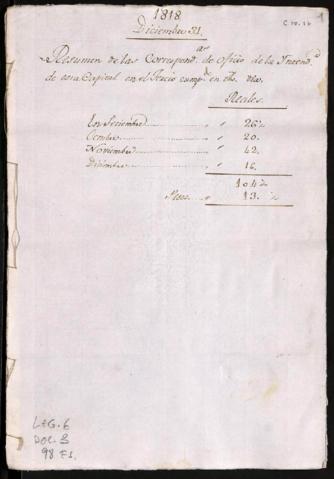 1818
C 10. 26
Diciembre 31.
Resumen de las Correspond.as de oficio de la Intend.a
de esta Capital en el Tercio cump.do en dho. dia.
Reales.
En Setiembre " 26 "
Octubre " 20.
Noviembre " 42.
Diciembre " 16.
104 "
Pesos 13. "
LEG. 6
DOC. 3
98 Fs.